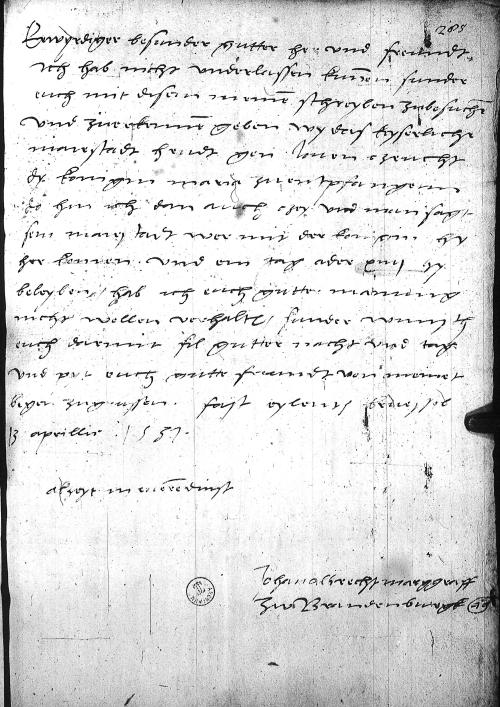 285
Erwyrdiger besunder gutter her und freundt
Ich hab nicht underlassen kunen sunder
euch mit disem meinem schreyben zubesuchen
und zuerkennen geben wy das kyserliche
maiestadt heudt gen louen zeucht
dy konigin maria zu entpfangenn
do hin ich dan auch und man sagt
sein maiestadt wer mit der konigin hy
her komen und ein tag oder xiiij hy
beleyben hab ich euch gutter maynung
nicht wollen verhalten sunder wunsch
euch darmit fil gutter nacht und tag
und pyt euch gutte freundt von meinet
wegen zugrussen fast eylents
3 aprillis 1531
alzeyt
Johan albrecht marggraff
zu Brandenburgk